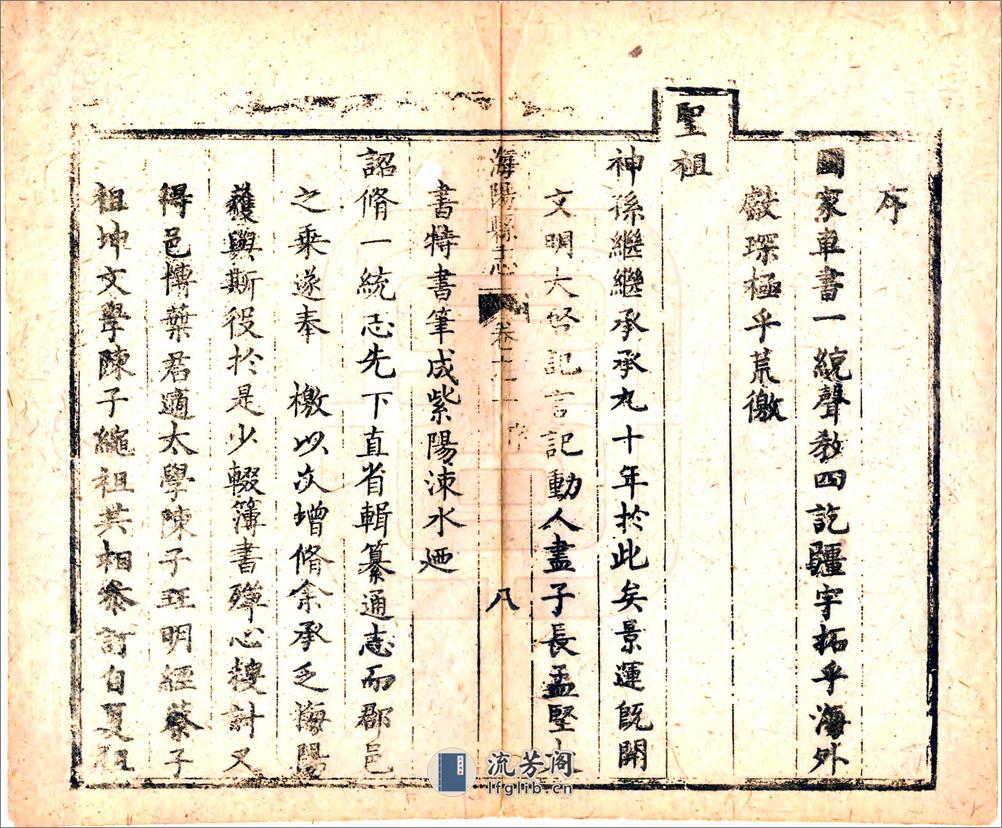 序
國家車書一統聲教四訖疆宇拓乎海外
獻琛極乎荒徼
聖祖
神孫繼繼承承九十年於此矣景運旣開
文明大啓記言記動人盡子長孟堅大
海陽縣志 卷十一 序 八
書特書筆成紫陽涑水廼
詔脩一統志先下直省輯纂通志而郡邑
之乘遂奉 檄以次增脩余承乏海陽
獲與斯役於是少輟簿書殫心搜討又
得邑博葉君適太學陳子珏明經蔡子
祖坤文學陳子繩祖共相參訂自夏徂
流芳阁
lfglib.cn